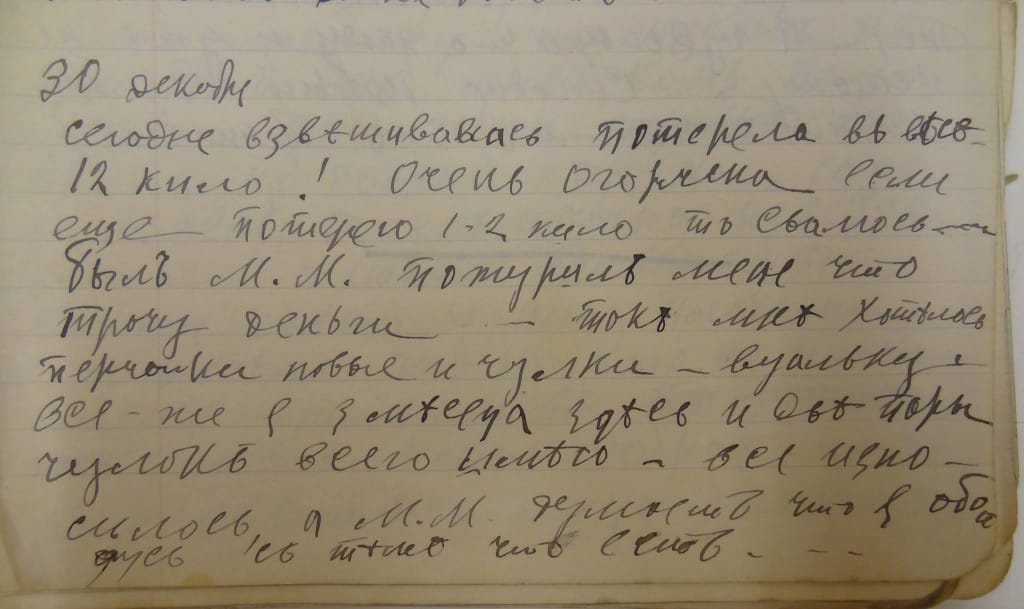 30 декабря
сегодне взвѣшивалась потерела въ вѣсѣ
12 кило! Очень огорчена если
еще потерею 1-2 кило то свалюсь
былъ М. М. пожурилъ мене что
трачу деньги - такъ мнѣ хотѣлось
перчатки новые и чулки - вуальку -
все-же я 3 мѣсеца здѣсь и двѣ пары
чулокъ всего имѣю - все изно-
силось, а М. М. думаетъ что я обой
дусь съ тѣмъ что есть - - -